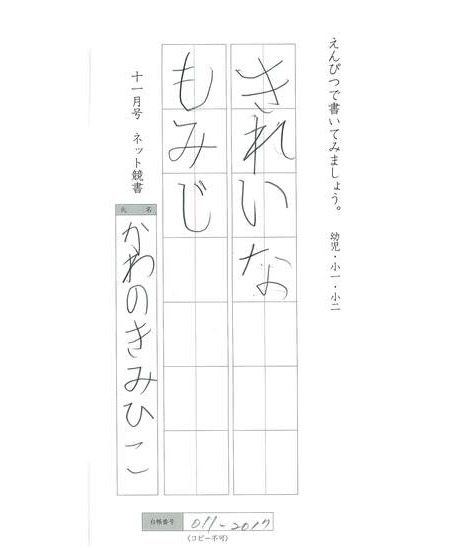 えんぴつで書いてみましょう。　幼児・小一・小二
きれいな
もみじ
十一月号　ネット競書
氏名
かわのきみひこ
台帳番号
011-2017
(コピー不可)